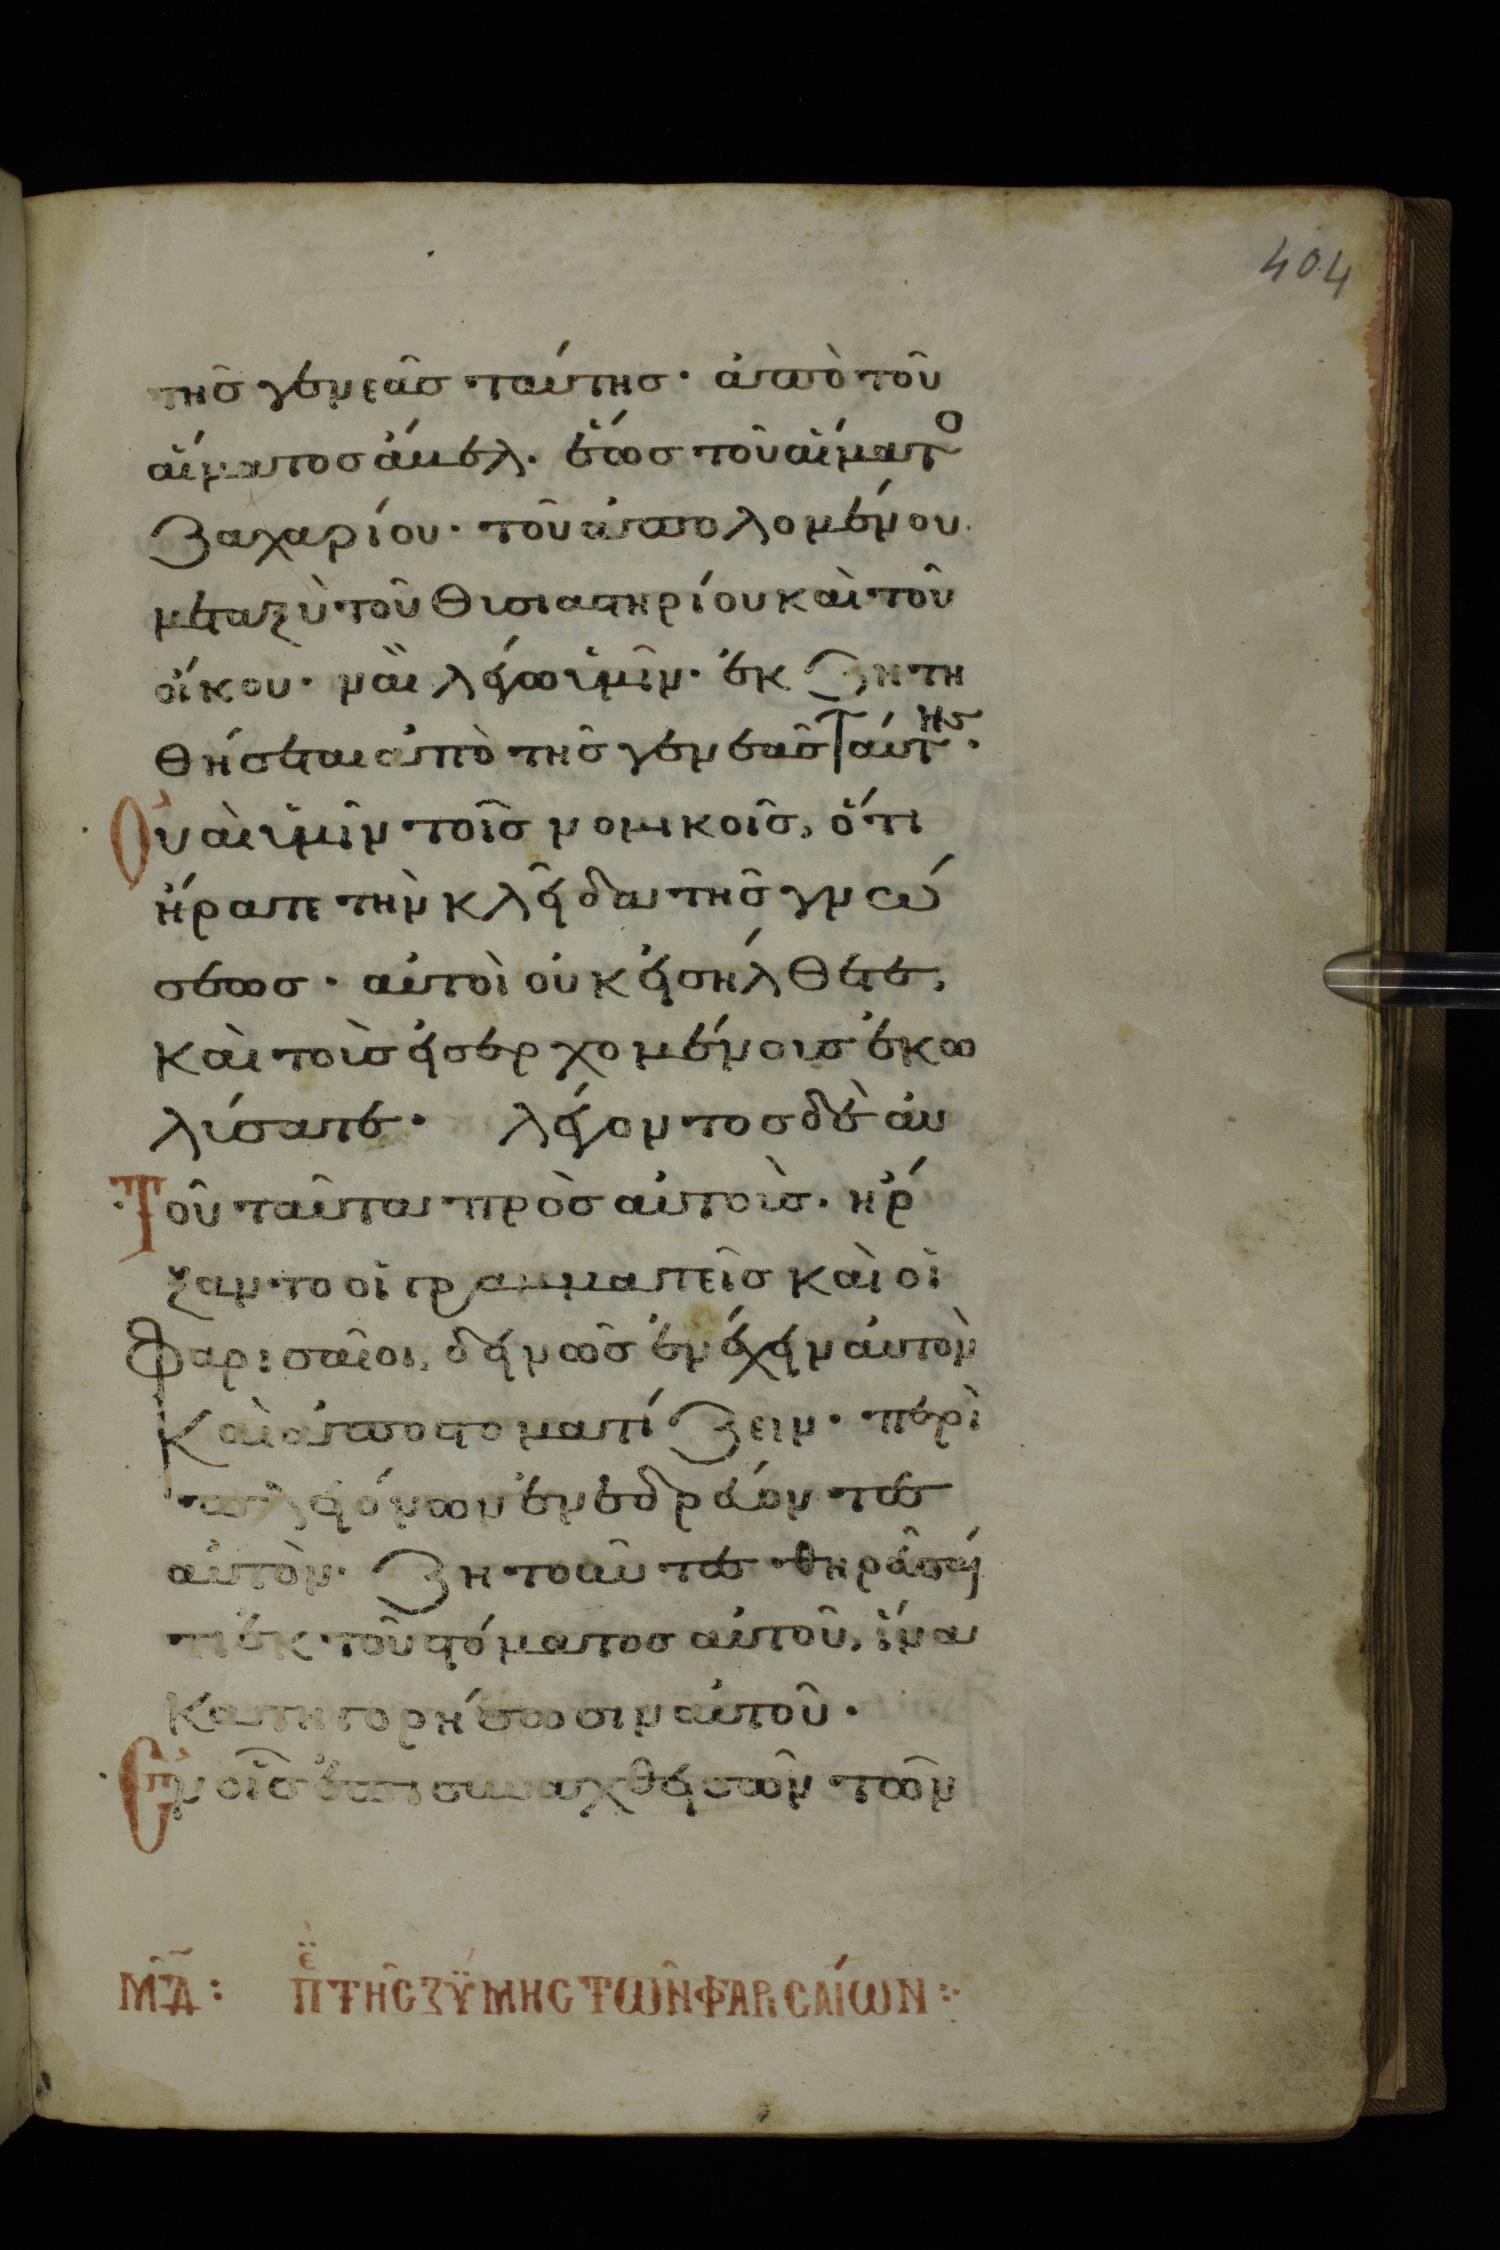 404
τῆς γενεᾶς ταύτης· ἀπὸ τοῦ
αἵματος ἄβελ· ἕως τοῦ αἵματο
Ζαχαρίου· τοῦ ἀπολομένου
μεταξὺ τοῦ θυσιαστηρίου καὶ τοῦ
οἴκου· ναὶ λέγω ὑμῖν· ἐκζητη
θήσεται ἀπὸ τῆς γενεᾶς ταύτης·
Οὐαὶ ὑμῖν τοῖς νομικοῖς, ὅτι
ἤρατε τὴν κλεῖδα τῆς γνώ
σεως· αὐτοὶ οὐκ εἰσήλθετε,
καὶ τοὺς εἰσερχομένους ἐκω
λύσατε· λέγοντος δὲ αὐ
Τοῦ ταῦτα πρὸς αὐτοὺς· ἤρ
ξαντο οἱ γραμματεῖς καὶ οἱ
Φαρισαῖοι, δεινῶς ἐνέχειν αὐτὸν
καὶ ἀποστοματίζειν· περὶ
πλειόνων ἐνεδρεύοντες
αὐτὸν· ζητοῦντες θηρεῦσαί
τι ἐκ τοῦ στόματος αὐτοῦ, ἵνα
κατηγορήσωσιν αὐτοῦ·
Ἐν οἷς ἐπισυναχθεισῶν τῶν
ΜΔ: ΠΕ ΤΗ͂Σ ΖΎΜΗΣ ΤΩ͂Ν ΦΑΡΙΣΑΊΩΝ:·